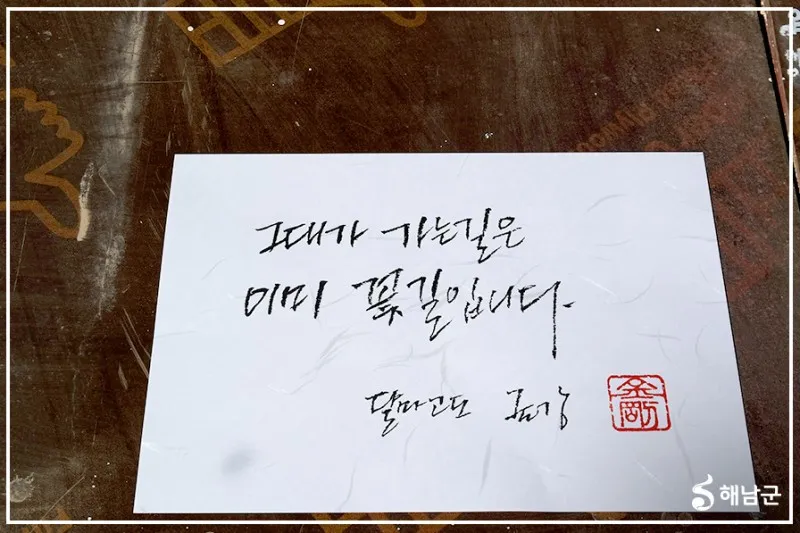 그대가 가는길은
이미 꽃길입니다.
달마고도 금강
金剛
해남군